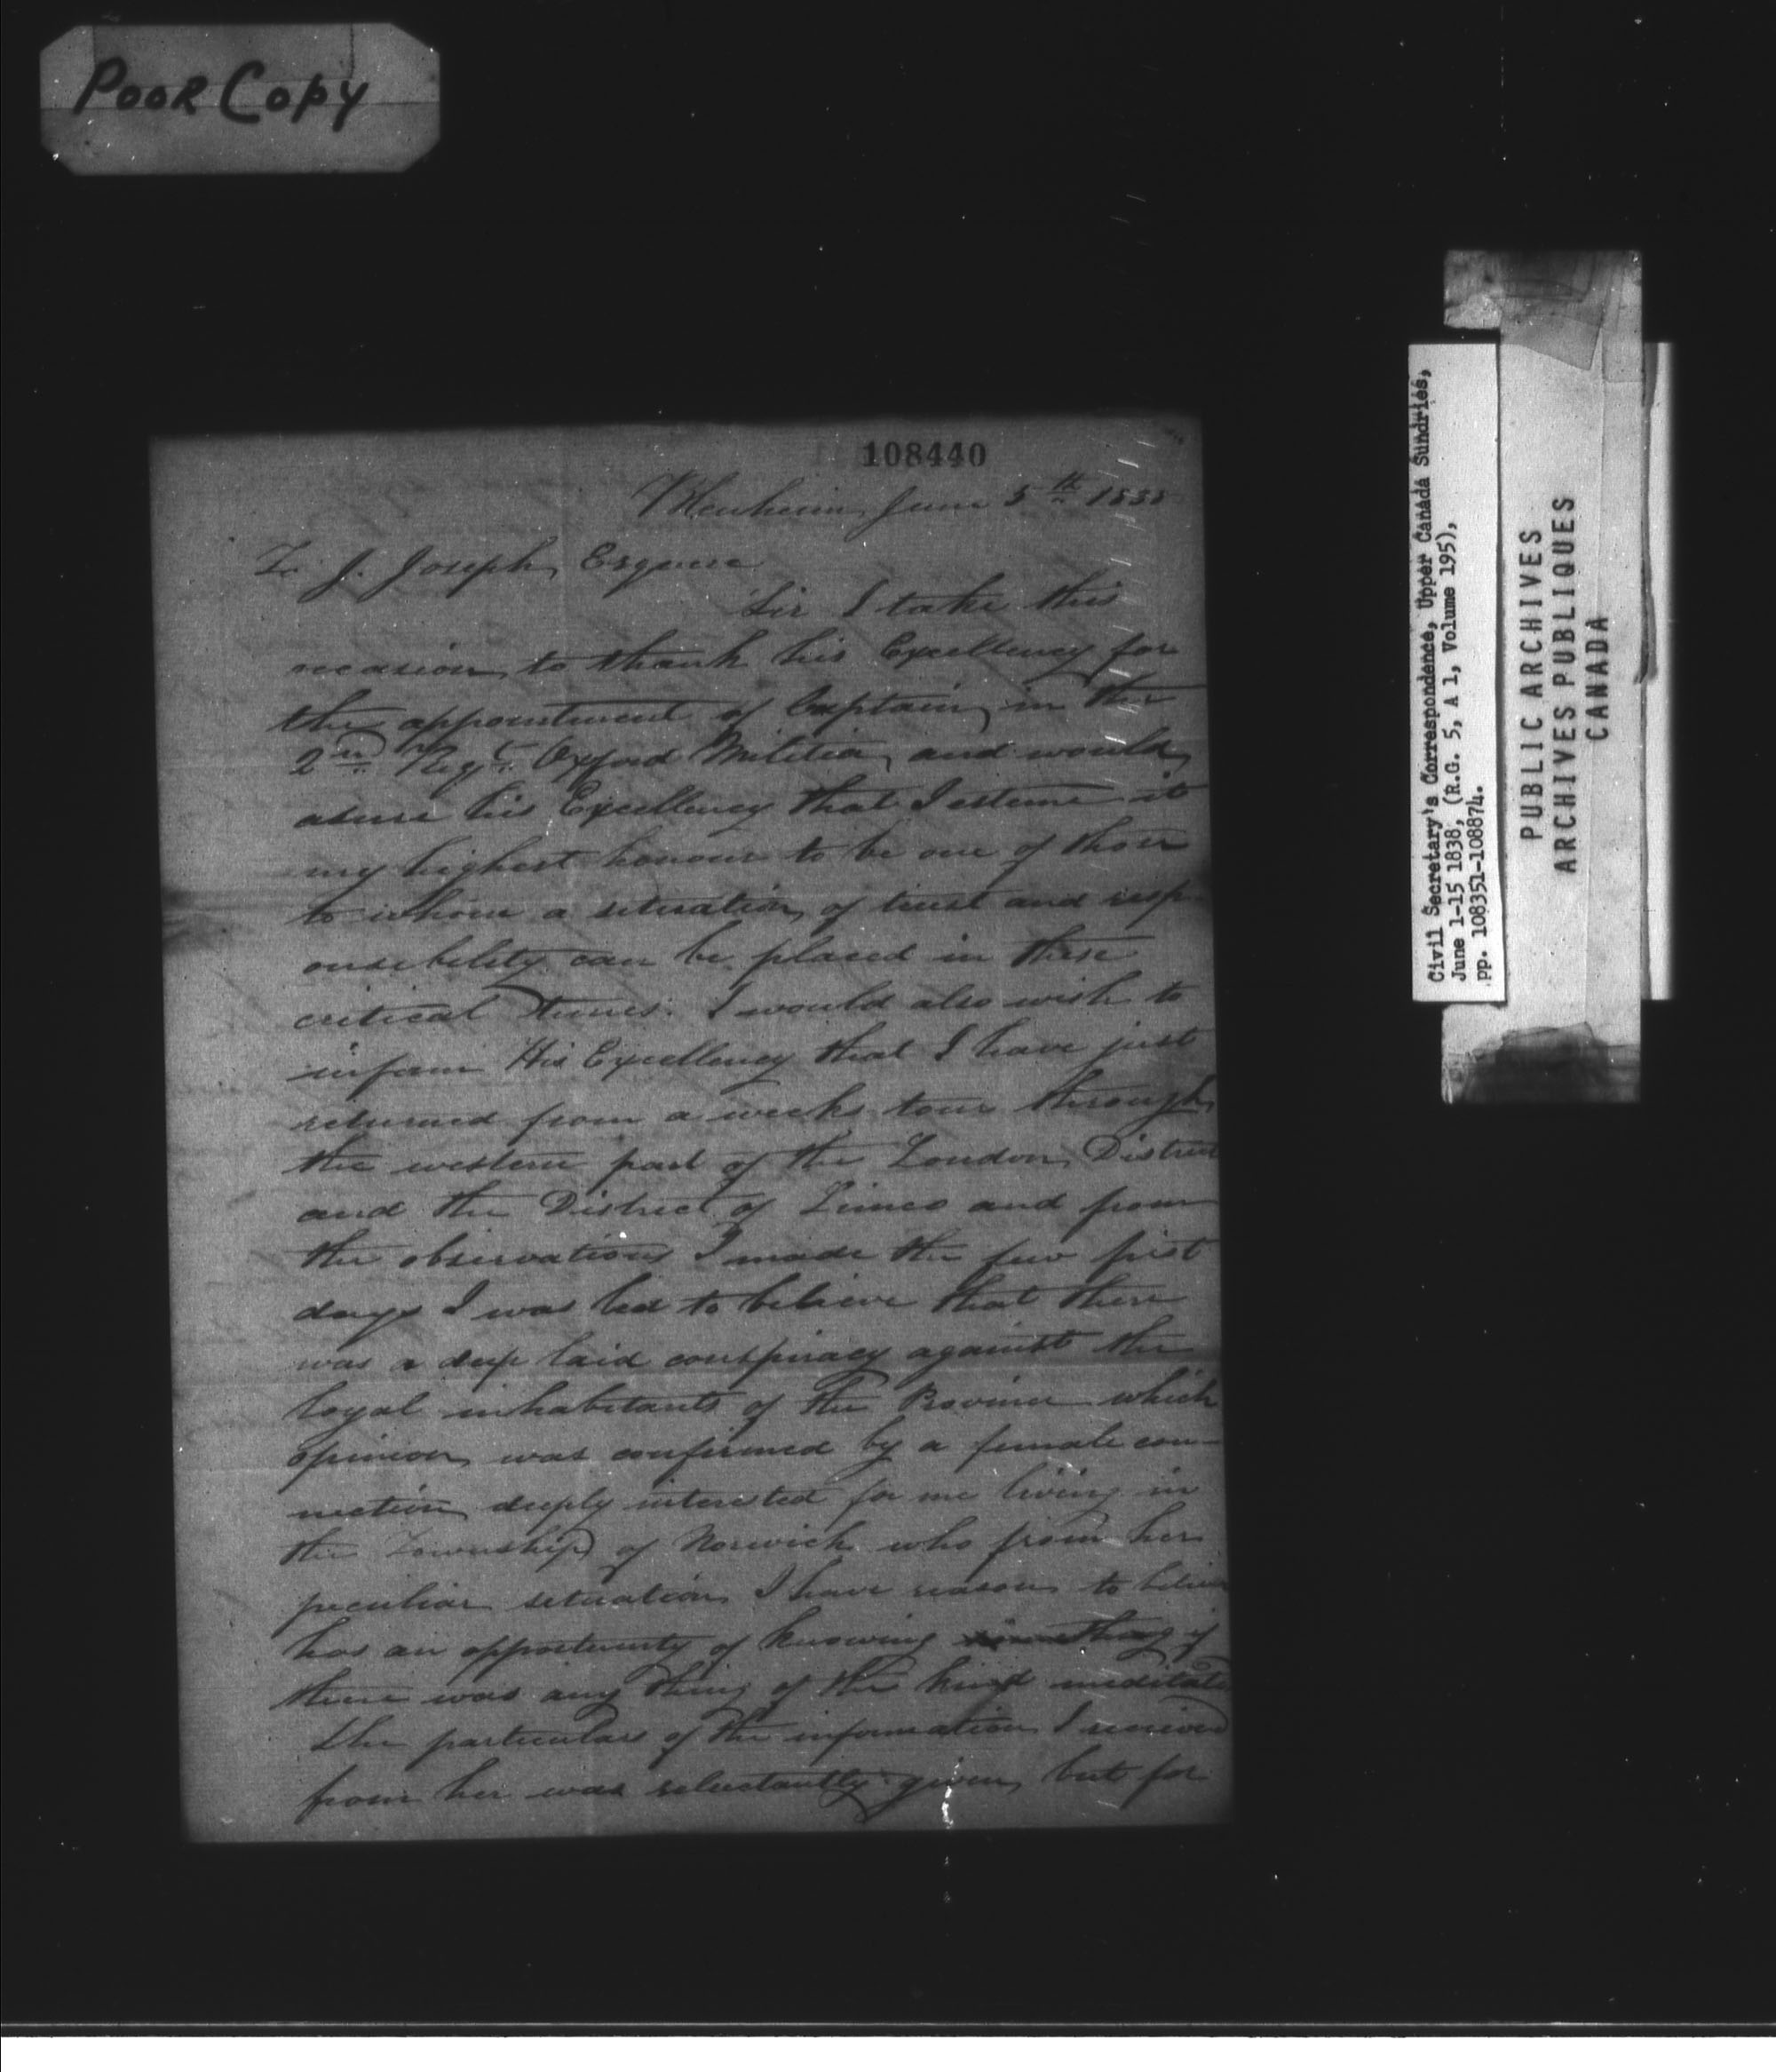 Poor Copy
108440
Blenheim June 5th 1838
To J. Joseph Esquire
Sir I take this
occasion to thank his Excellency for
the appointment of Captain in the
2nd Regt Oxford Militia and would
assure his Excellency that I esteme it
my highest honour to be one of those
to whom a situation of trust and resp-
onsibility can be placed in these
critical times. I would also wish to
inform His Excellency that I have just
returned from a weeks tour through
the western part of the London District
and the District of and from
the observations I made the few first
days I was led to believe that there
was a deep laid conspiracy against the
loyal inhabitants of the Province which
opinion was confirmed by a female con-
nection deeply interested for me living in
the Township of Norwich who from her
peculiar situation I have reason to believe
has an opportunity of knowing if
there was any thing of the kind meditate
the particulars of the information I received
from her was reluctantly given but for
Civil Secretary's Correspondence, Upper Canada Sundries,
June 1-15 1838, (R.G. 5, A 1, Volume 195),
pp. 108351-108874.
PUBLIC ARCHIVES
ARCHIVES PUBLIQUES
CANADA